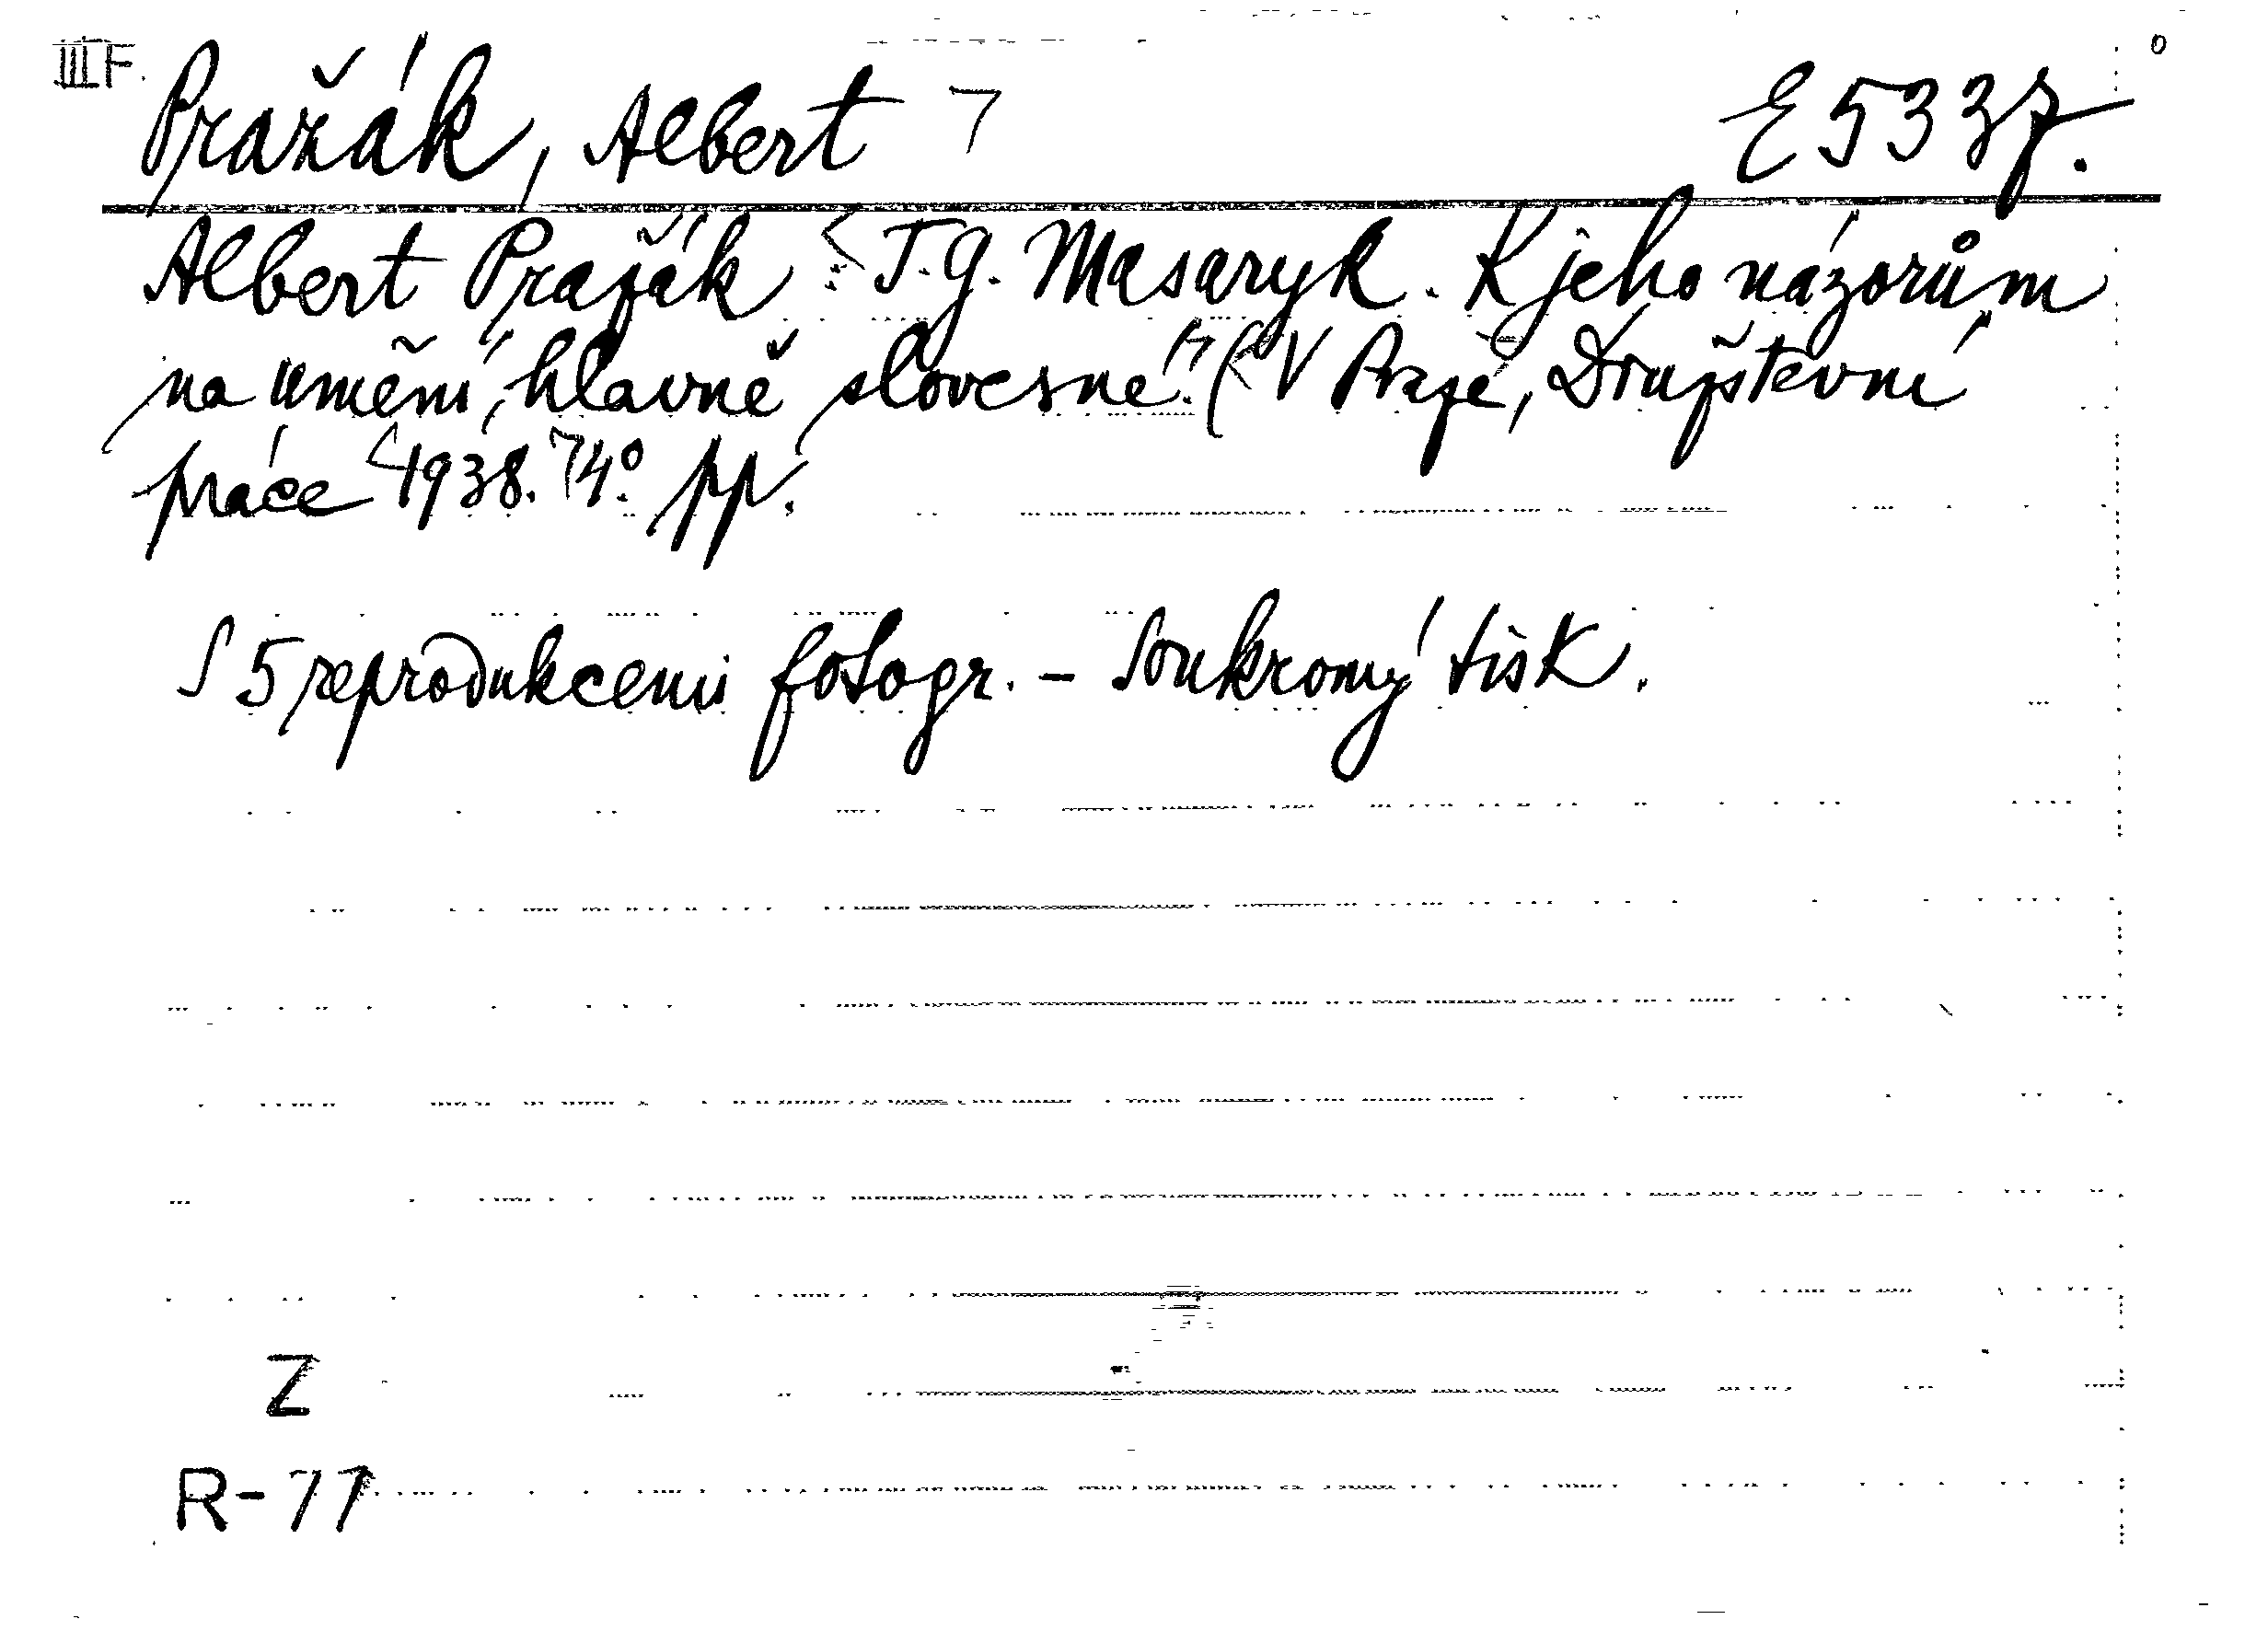 III F.
Pražák, Albert 7
E 5337.
Albert Pražák : T. G. Masaryk. K jeho názorům
na umění, hlavně slovesné. (V Praze, Družstevní
práce 1938.) 4°. pp.
S 5 reprodukcemi fotogr. - Soukromý tisk.
Z
R-77